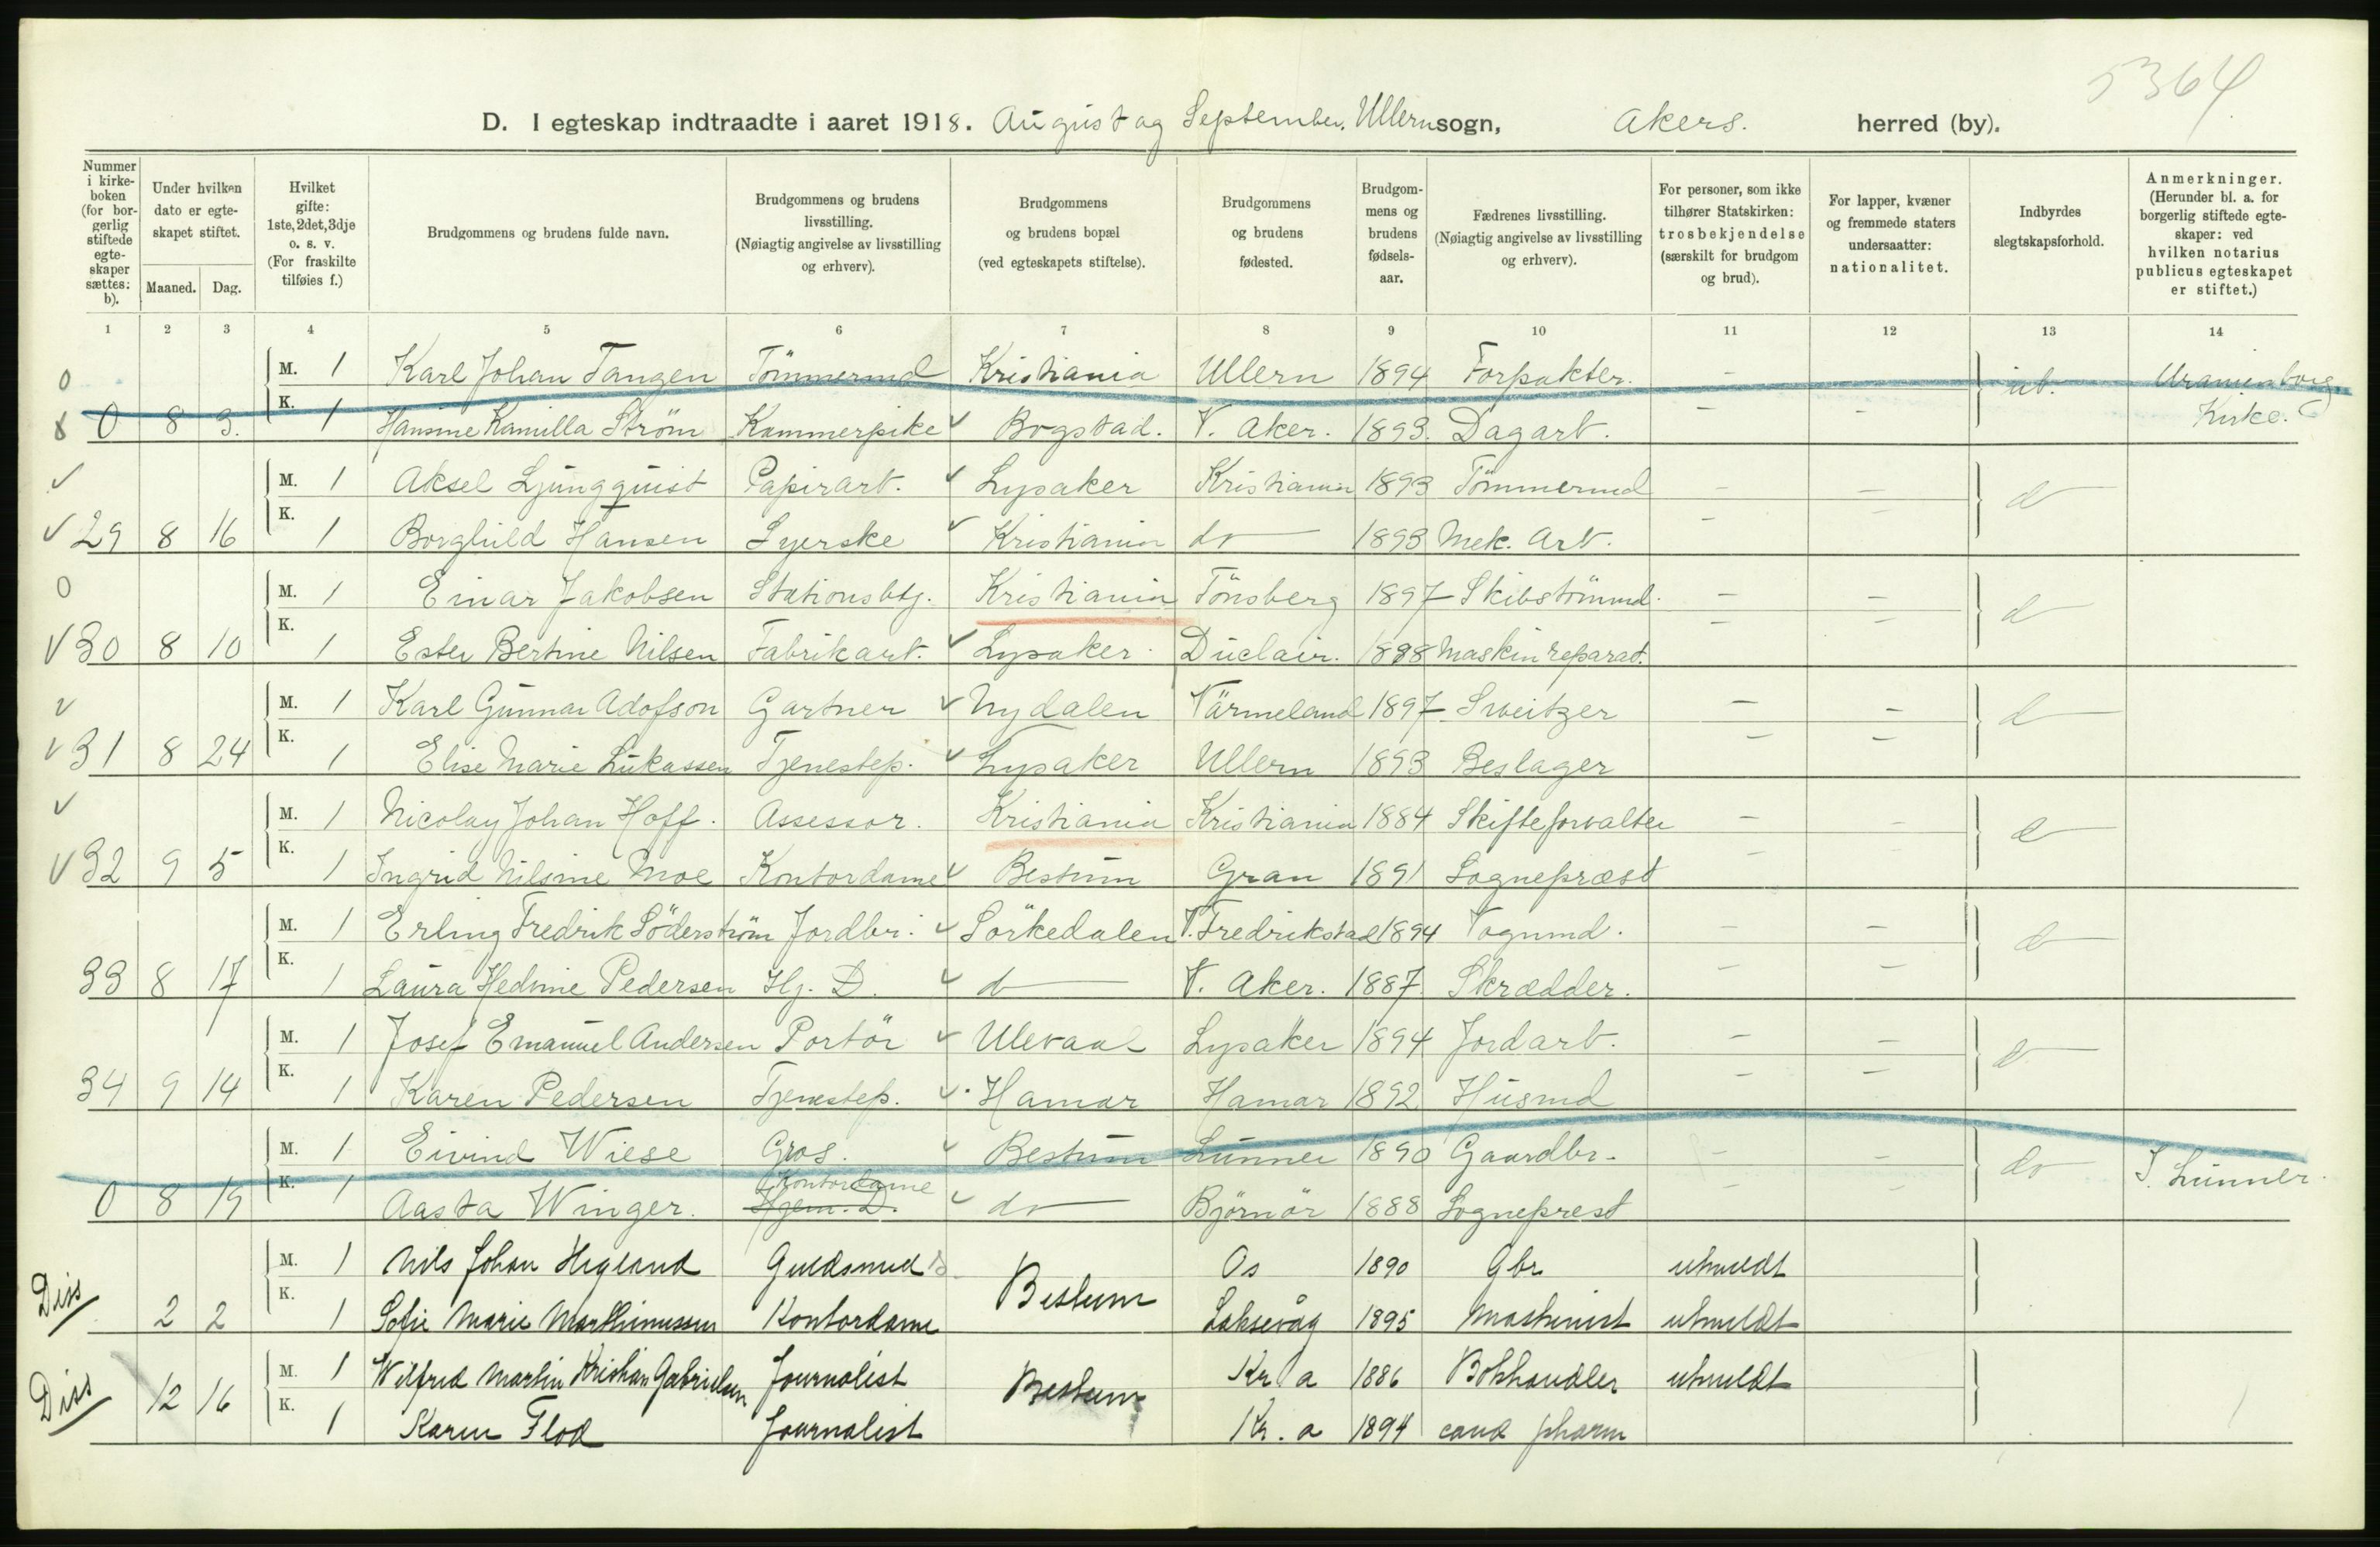 5364
D. I egteskap indtraadte i aaret 1918. August og September. Ullern sogn, Akers. herred (by).
Nummer i kirke-boken (for bor-gerlig stiftede egte-skaper sættes: b).
Under hvilken dato er egte-skapet stiftet.
Maaned. Dag.
Hvilket gifte: 1ste, 2det, 3dje o. s. v. (For fraskilte tilføies f.)
Brudgommens og brudens fulde navn.
Brudgommens og brudens livsstilling. (Nøiagtig angivelse av livsstilling og erhverv).
Brudgommens og brudens bopæl (ved egteskapets stiftelse).
Brudgommens og brudens fødested.
Brudgom-mens og brudens fødsels-aar.
Fædrenes livsstilling. (Nøiagtig angivelse av livsstilling og erhverv).
For personer, som ikke tilhører Statskirken: trosbekjendelse (særskilt for brudgom og brud).
For lapper, kvæner og fremmede staters undersaatter: nationalitet.
Indbyrdes slegtskapsforhold.
Anmerkninger. (Herunder bl. a. for borgerlig stiftede egte-skaper: ved hvilken notarius publicus egteskapet er stiftet.)
1 2 3 4 5 6 7 8 9 10 11 12 13 14
0 M. 1 Karl Johan Tangen Tömmermd Kristiania Ullern 1894 Forpakter. — ub. Uranienborg
0 8 3. K. 1 Hansine Kamilla Strøm Kammerpike ✓ Bogstad. V. Aker. 1893. Dagarb. — — Kirke.
✓ M. 1 Aksel Ljungquist Papirarb. ✓ Lysaker Kristiania 1893 Tömmermd — — do
✓ 29 8 16 K. 1 Borghild Hansen Syerske ✓ Kristiania do 1893 Mek. Arb. — —
0 M. 1 Einar Jakobsen Stationsbtj. Kristiania Tönsberg 1897 Skibstömmd. — — do
✓ 30 8 10 K. 1 Ester Bertine Nilsen Fabrikarb. ✓ Lysaker Duclair. 1898 Maskinreparat. — —
✓ M. 1 Karl Gunnar Adofson Gartner ✓ Nydalen Värmeland 1897 Sveitzer — — do
✓ 31 8 24 K. 1 Elise Marie Lukassen Tjenestep. ✓ Lysaker Ullern 1893 Beslager — —
✓ M. 1 Nicolay Johan Hoff. Assessor. Kristiania Kristiania 1884 Skifteforvalter — — do
✓ 32 9 5 K. 1 Ingrid Nilsine Moe Kontordame ✓ Bestum Gran 1891 Sognepræst — —
M. 1 Erling Fredrik Söderström Jordbr. ✓ Sörkedalen V. Fredrikstad 1894 Vognmd. — — do
33 8 17 K. 1 Laura Hedvine Pedersen Hj. D. ✓ do V. Aker. 1887. Skrædder. — —
M. 1 Josef Emanuel Andersen Portör ✓ Ulevaal Lysaker 1894 Jordarb. — — do
34 9 14 K. 1 Karen Pedersen Tjenestep. ✓ Hamar Hamar 1892 Husmd — —
M. 1 Eivind Wiese Gros. ✓ Bestum Lunner 1890 Gaardbr. — — do I. Lunner.
Kontordame
0 8 19 K. 1 Aasta Winger. Hjem. D. ✓ do Björnör 1888 Sogneprest — —
M. 1 Nils Johan Hegland Guldsmed Bestum Os 1890 Gbr utmeldt
Diss 2 2 K. 1 Sofie Marie Marthinussen Kontordame Laksevåg 1895 Maskinist utmeldt
M. 1 Wilfred Martin Kristian Gabrielsen Journalist Bestum Kr a 1886 Bokhandler utmeldt
Diss 12 16 K. 1 Karen Flod Journalist Kr. a 1894 cand pharm